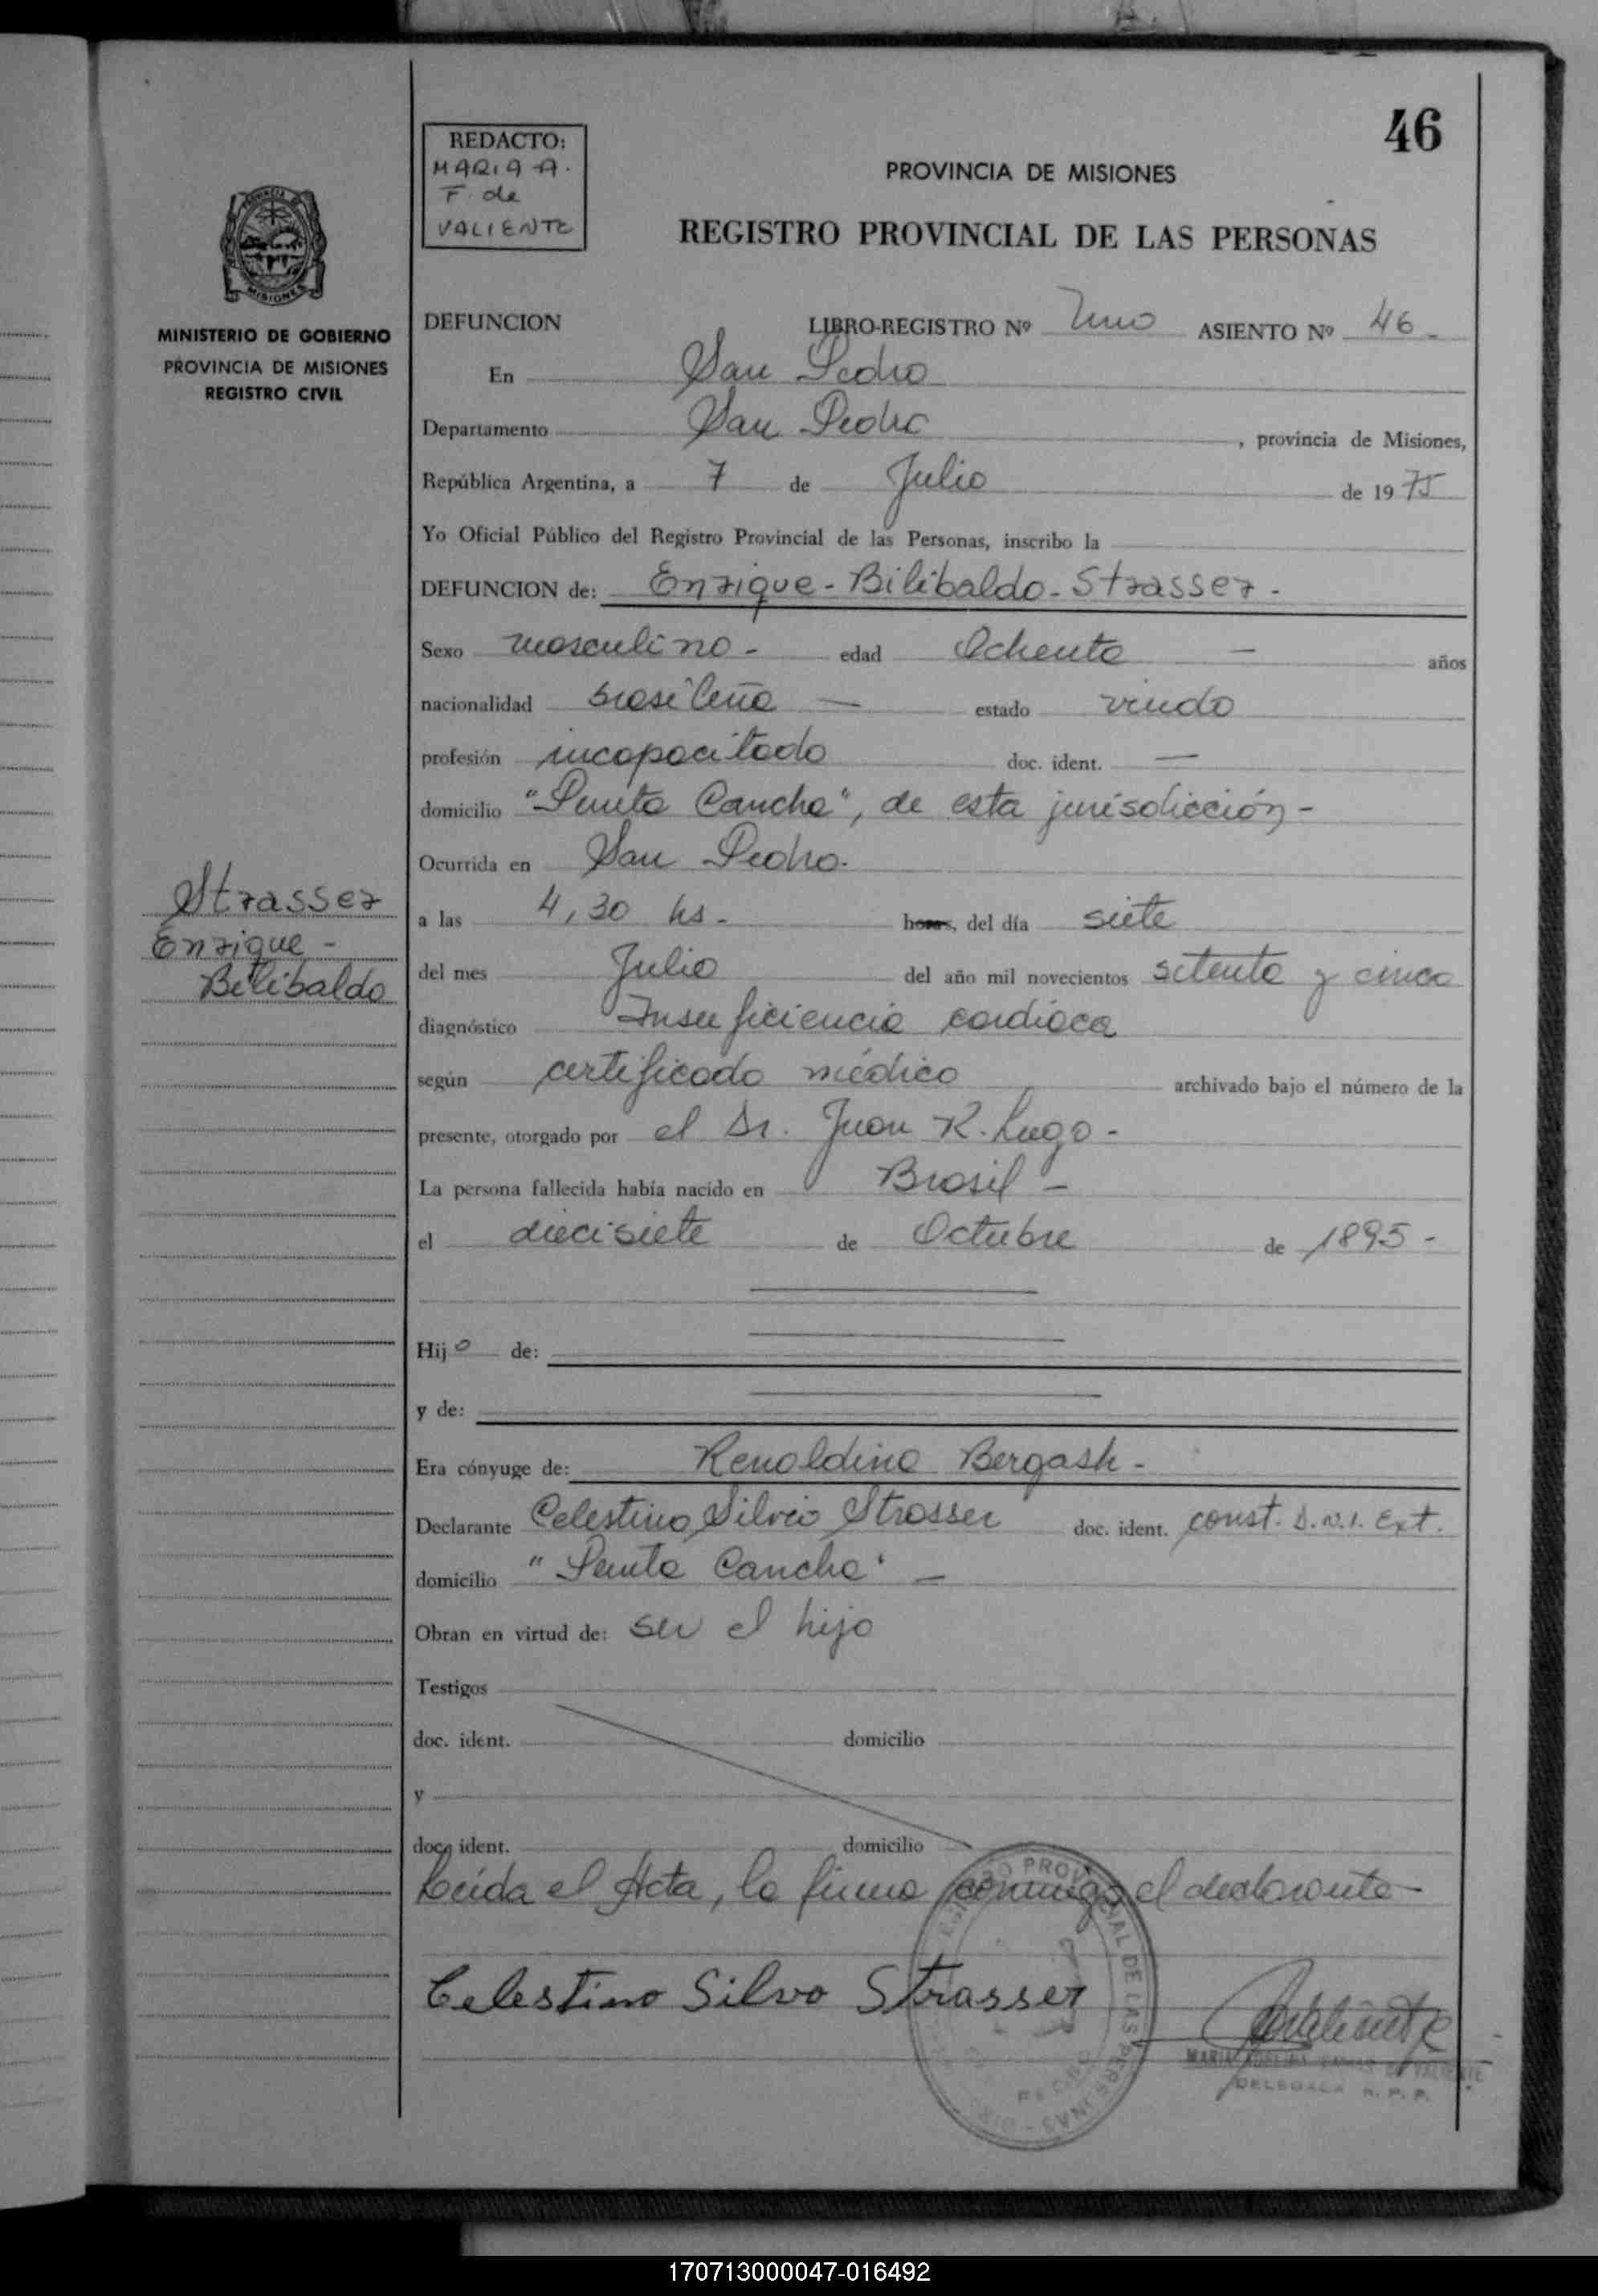 46
REDACTO:
MARIA A.
F. de
VALIENTE
PROVINCIA DE MISIONES
REGISTRO PROVINCIAL DE LAS PERSONAS
MISIONES
MINISTERIO DE GOBIERNO
PROVINCIA DE MISIONES
REGISTRO CIVIL
DEFUNCION LIBRO-REGISTRO Nº Uno ASIENTO Nº 46 -
En San Pedro
Departamento San Pedro, provincia de Misiones,
República Argentina, a 7 de Julio de 1975
Yo Oficial Público del Registro Provincial de las Personas, inscribo la
DEFUNCION de: Enrique - Bilibaldo - Strasser -
Sexo masculino - edad Ochenta — años
nacionalidad brasileña — estado viudo
profesión incapacitado doc. ident. —
domicilio "Cancha", de esta jurisdicción -
Ocurrida en San Pedro.
a las 4,30 hs. - horas, del día siete
del mes Julio del año mil novecientos setenta y cinco
diagnóstico Insuficiencia cardíaca
según certificado médico archivado bajo el número de la
presente, otorgado por el Dr. Juan R. Lugo -
La persona fallecida había nacido en Brasil -
el diecisiete de Octubre de 1895 -
Hijo de:
y de:
Era cónyuge de: Renaldina Bergash -
Declarante Celestino Silvio Strasser doc. ident. const. D.N.I. Ext.
domicilio "Cancha" -
Obran en virtud de: ser el hijo
Testigos
doc. ident. domicilio
y
doc. ident. domicilio
Leída el Acta, la firma conmigo el declarante -
Celestino Silvo Strasser
Strasser
Enrique -
Bilibaldo
DELEGADA R. P. P.
170713000047-016492